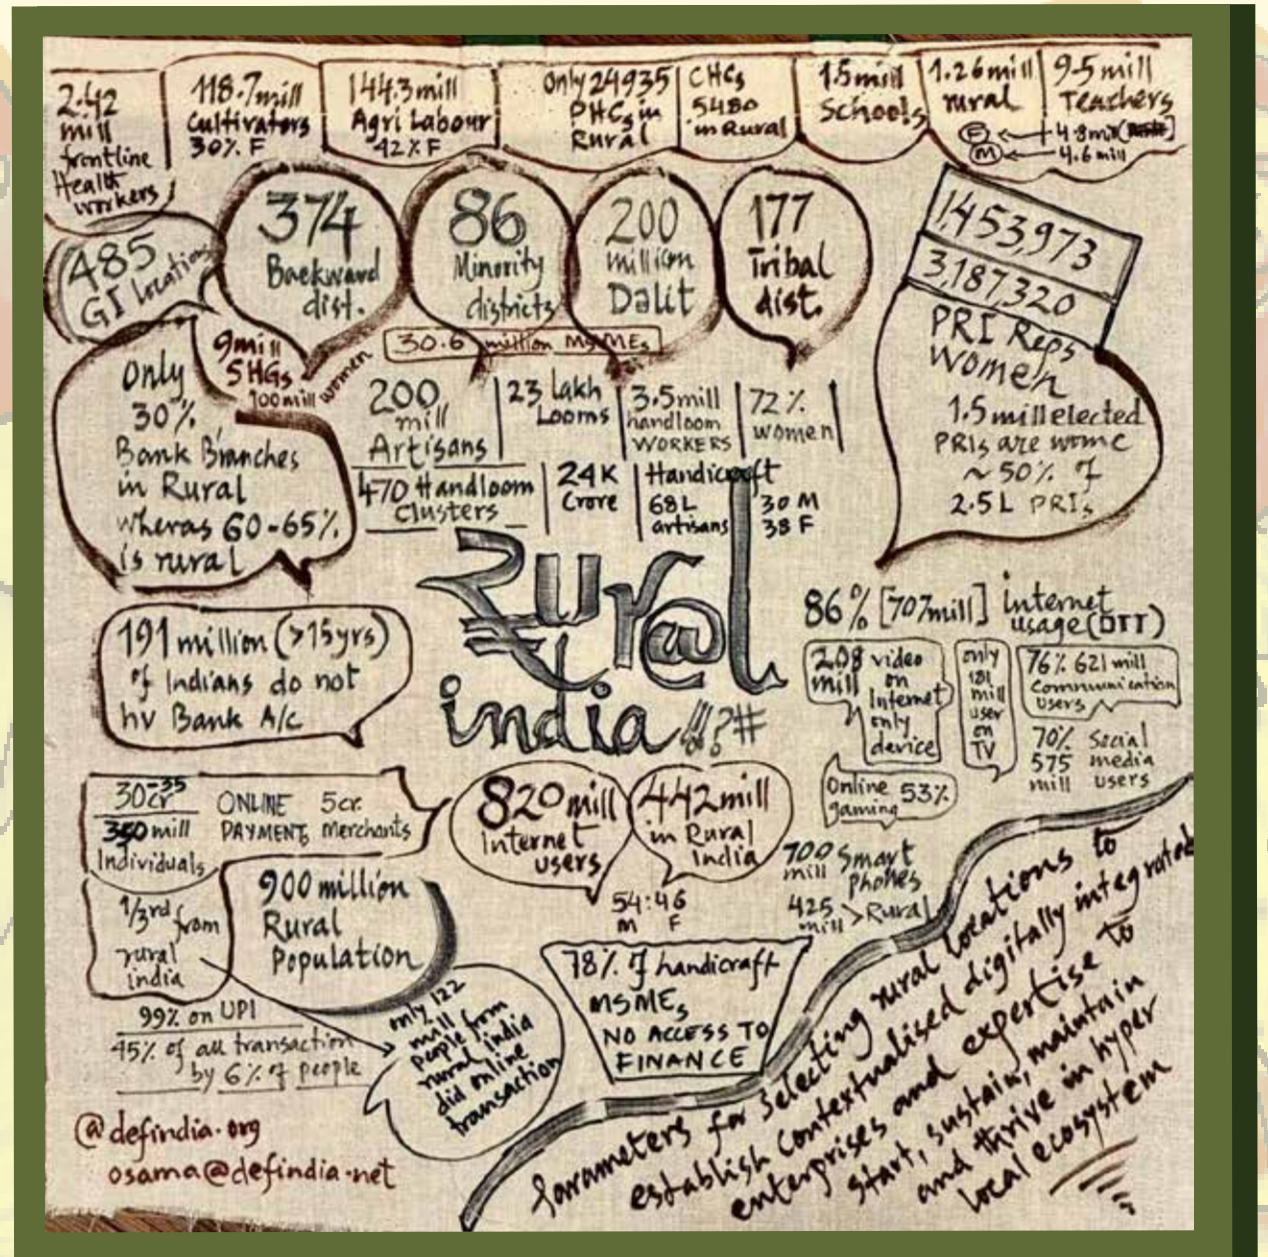 2.42
mill
frontline
Health
workers
118.7 mill
Cultivators
30% F
144.3 mill
Agri Labour
42% F
Only 24935
PHCs in
Rural
CHCs
5480
in Rural
1.5 mill
Schools
1.26 mill
rural
9.5 mill
Teachers
F ← 4.8 mill
M ← 4.6 mill
485
GI Locations
374
Backward
dist.
86
Minority
districts
200
million
Dalit
177
Tribal
dist.
1,453,973
3,187,320
PRI Reps
Women
1.5 mill elected
PRIs are wome
~ 50% of
2.5 L PRIs
30.6 million MSMEs
9 mill
SHGs
100 mill women
Only
30%
Bank Branches
in Rural
wheras 60-65%
is rural
200
mill
Artisans
23 lakh
Looms
3.5 mill
handloom
WORKERS
72%
women
470 Handloom
Clusters
24K
Crore
Handicraft
68L
artisans
30 M
38 F
Rur@l
india !!?#
191 million (>15yrs)
of Indians do not
hv Bank A/c
86% [707 mill] internet
usage (OTT)
208 video
mill on
Internet
only
device
only
181
mill
user
on
TV
76% 621 mill
Communication
users
70% Social
575 media
mill users
Online 53%
gaming
30-35
cr
350 mill
Individuals
ONLINE 5cr.
PAYMENT Merchants
820 mill
Internet
users
442 mill
in Rural
India
54:46
M F
700 Smart
mill Phones
425
mill > Rural
1/3rd from
rural
india
900 million
Rural
Population
99% on UPI
45% of all transaction
by 6% of people
only 122
mill
people from
rural india
did online
transaction
78% of handicraft
MSMEs
NO ACCESS TO
FINANCE
Parameters for selecting rural locations to
establish contextualised digitally integrated
enterprises and expertise to
start, sustain, maintain
and thrive in hyper
local ecosystem
@defindia.org
osama@defindia.net